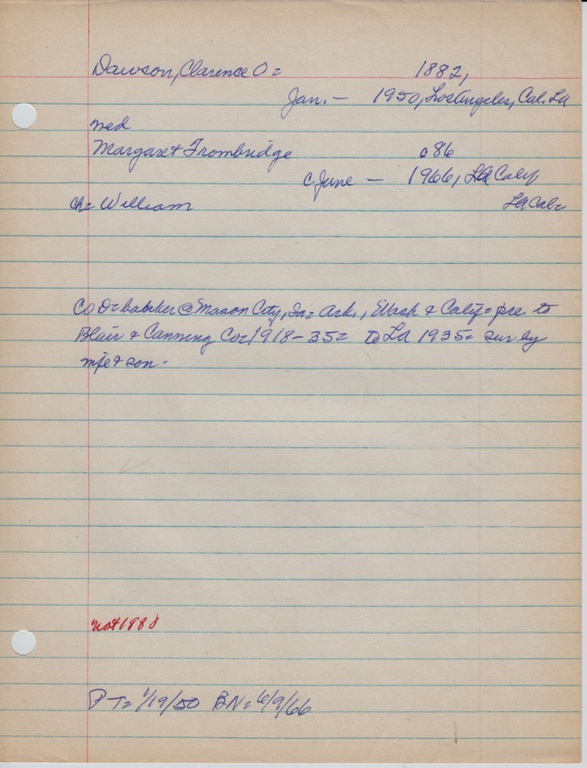 Dawson, Clarence O= 1882,
Jan. — 1950, Los Angeles, Cal. LA
med
Margaret Trombridge c86
c June — 1966, LA Calif
ch= William LA Cal=
CO D= baker @ Mason City, Ia= Ark., Wash & Calif= pre to
Blair & Canning Co= 1918-35= to LA 1935= sur by
wife & son.
not 1888
PT= 1/19/50 BN= 6/9/66